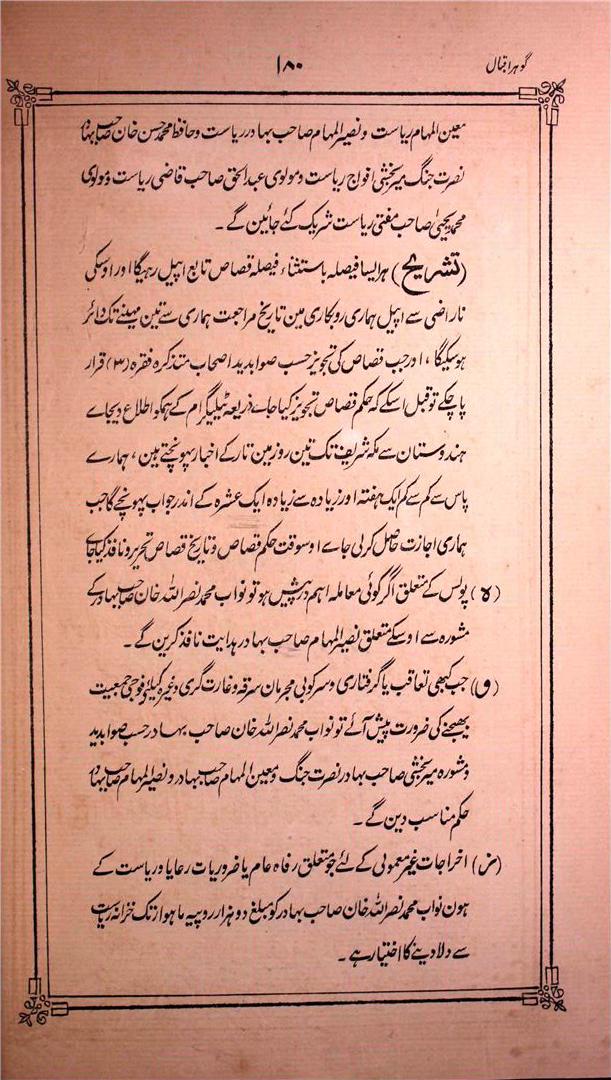 گوہر اقبال
۱۸۰
معین المہام ریاست ونصیر المہام صاحب بہادر ریاست وحافظ محمد حسن خان صاحب بہادر
نصرت جنگ میر بخشی افواج ریاست ومولوی عبد الحق صاحب قاضی ریاست ومولوی
محمد یحییٰ صاحب مفتی ریاست شریک کئے جائین گے ۔
(تشریح) ہر ایسا فیصلہ باستثناء فیصلہ قصاص تابع اپیل رہیگا اور اوسکی
ناراضی سے اپیل ہماری روبکاری مین تاریخ مراجعت ہماری سے تین مہینے تک دائر
ہوسکیگا ، اور جب قصاص کی تجویز حسب صوابدید اصحاب متذکرہ فقرہ (۳) قرار
پا چکے تو قبل اسکے کہ حکم قصاص تجویز کیا جاے ذریعہ ٹیلیگرام کے ہمکو اطلاع دیجاے
ہندوستان سے مکہ شریف تک تین روز مین تار کے اخبار پہونچتے ہین ، ہمارے
پاس سے کم سے کم ایک ہفتہ اور زیادہ سے زیادہ ایک عشرہ کے اندر جواب پہونچے گا جب
ہماری اجازت حاصل کرلی جاے اوسوقت حکم قصاص و تاریخ قصاص تحریر و نافذ کیا جاے
(ﻫ) پولس کے متعلق اگر کوئی معاملہ اہم درپیش ہو تو نواب محمد نصر اللہ خان صاحب بہادر کے
مشورہ سے اوسکے متعلق نصیر المہام صاحب بہادر ہدایت نافذ کرین گے ۔
(و) جب کبھی تعاقب یا گرفتاری وسرکوبی مجرمان سرقہ وغارت گری وغیرہ کیلئے فوجی جمعیت
بھیجنے کی ضرورت پیش آئے تو نواب محمد نصر اللہ خان صاحب بہادر حسب صوابدید
ومشورہ میر بخشی صاحب بہادر نصرت جنگ ومعین المہام صاحب بہادر ونصیر المہام صاحب بہادر
حکم مناسب دین گے ۔
(ز) اخراجات غیر معمولی کے لئے جو متعلق رفاہ عام یا ضروریات رعایا وریاست کے
ہون نواب محمد نصر اللہ خان صاحب بہادر کو مبلغ دو ہزار روپیہ ماہوار تک خزانہ ریاست
سے دلا دینے کا اختیار ہے ۔